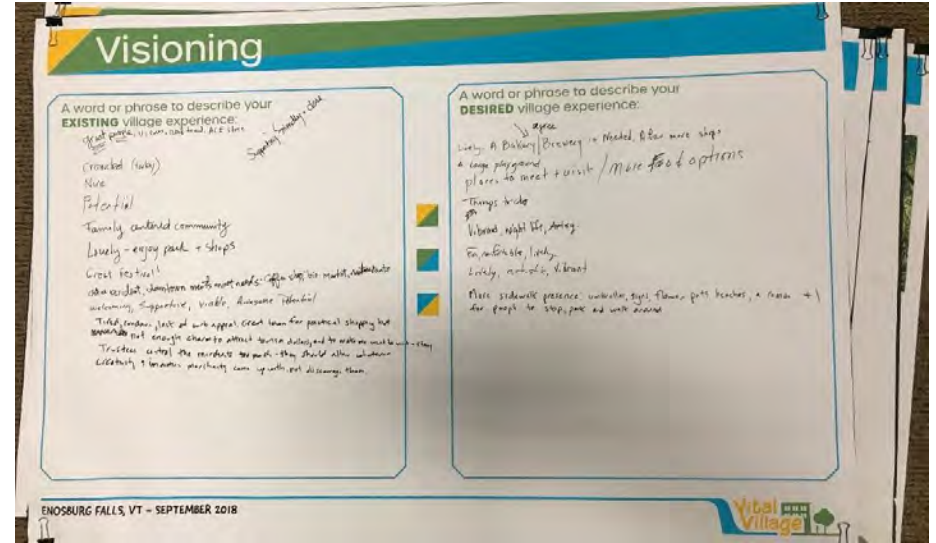 Visioning
A word or phrase to describe your
EXISTING village experience:
great people, views,
Supporting, friendly, close
Crowded (today)
Nice
Potential
Family centered community
Lovely - enjoy park + shops
Great festival!
as a resident, downtown meets most needs: coffee shop,
welcoming, supportive, viable, Awesome Potential
Tired, lack of curb appeal, Great town for practical shopping but
not enough charm to attract tourism dollars and to make me want to
Trustees control the merchants too much - they should allow whatever
creativity & merchants come up with, not discourage them.
A word or phrase to describe your
DESIRED village experience:
agree
Lively, A Bakery/Brewery is Needed, A few more shops
A large playground
places to meet + visit / More food options
Vibrant, night life, Artsy
Comfortable, lively
Lively, vibrant
More sidewalk presence: umbrellas, signs, flower pots, benches, a reason +1
for people to stop, park and walk around
ENOSBURG FALLS, VT - SEPTEMBER 2018
Vital
Village